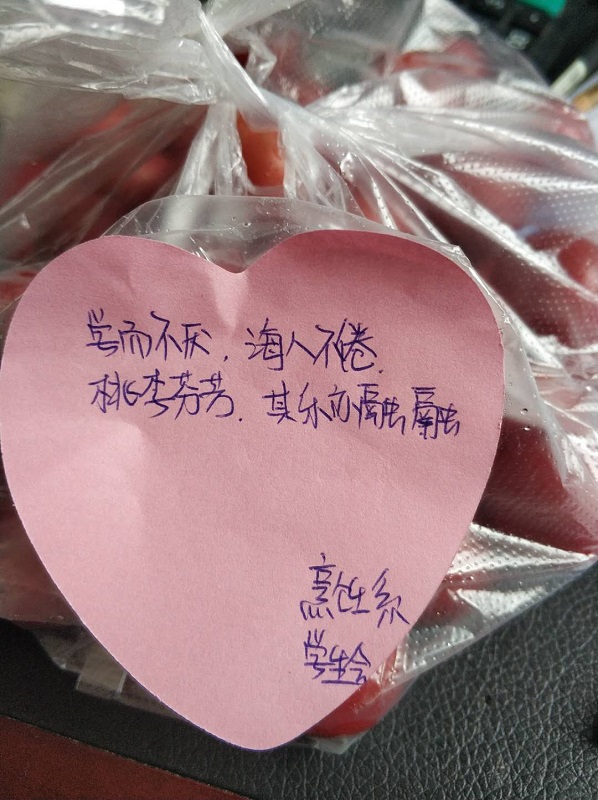 学而不厌,海人不倦.
桃李芬芳.其乐亦融融
烹饪系
学生会